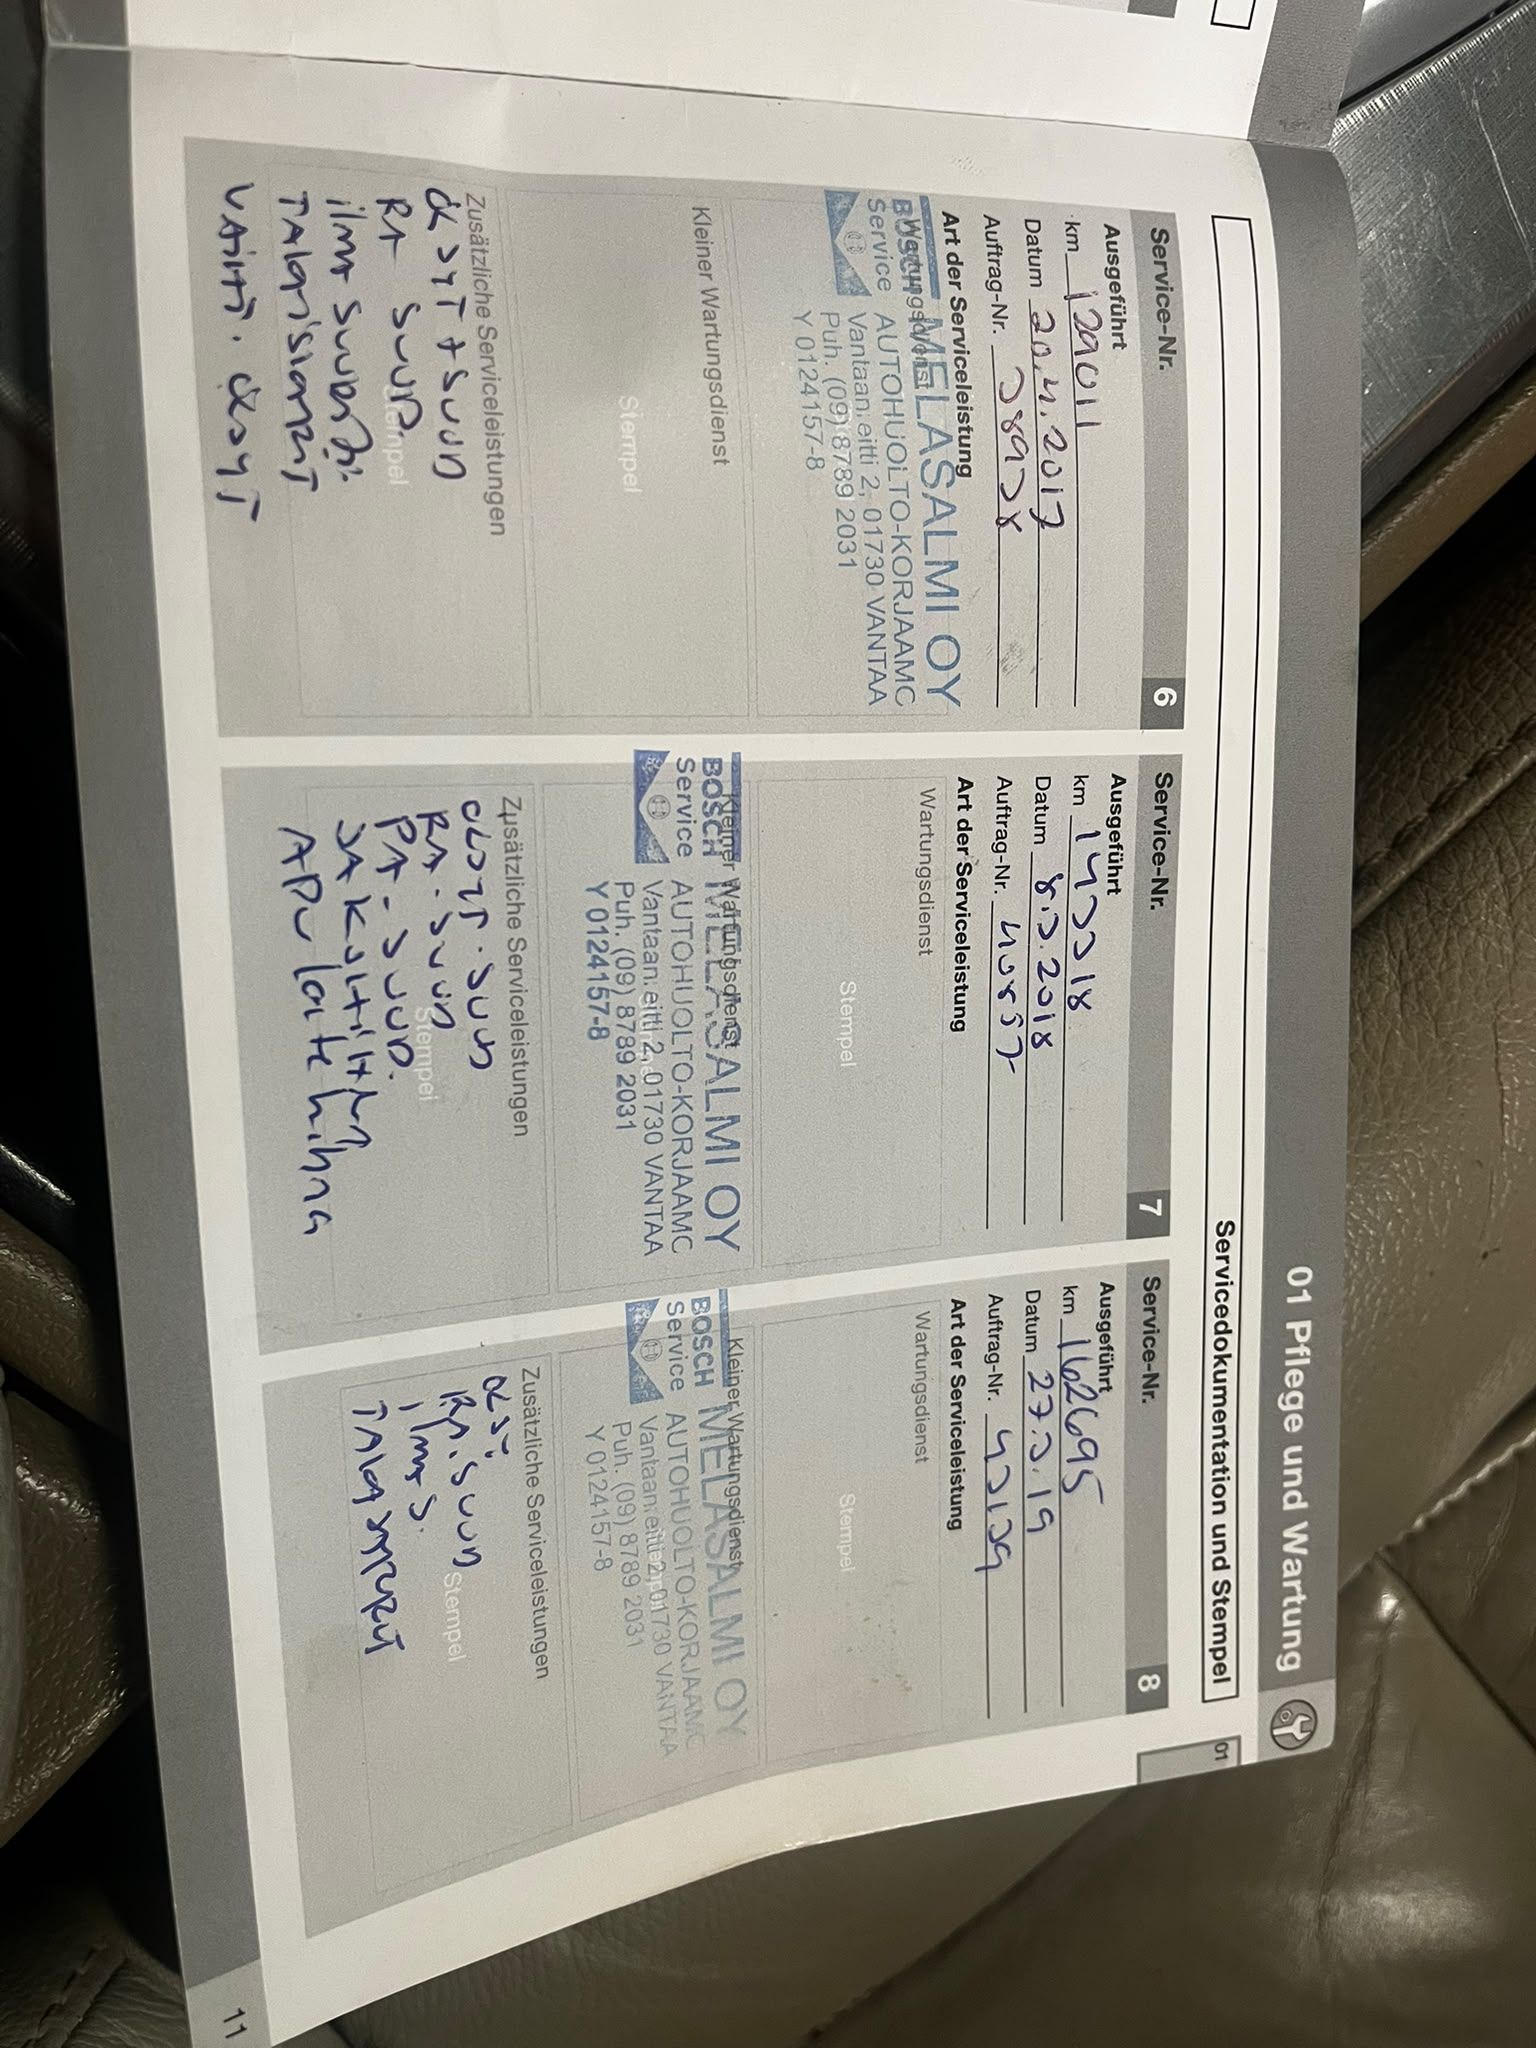 01 Pflege und Wartung
Servicedokumentation und Stempel
01
Service-Nr. 6
Ausgeführt
km 129011
Datum 20.4.2017
Auftrag-Nr. 38938
Art der Serviceleistung
Wartungsdienst
BOSCH
Service
MELASALMI OY
AUTOHUOLTO-KORJAAMO
Vantaan eitti 2, 01730 VANTAA
Puh. (09) 8789 2031
Y 0124157-8
Kleiner Wartungsdienst
Stempel
Zusätzliche Serviceleistungen
Stempel
öljyt + suod
RA suod.
ilmasuod
VAiht. öljyt
Service-Nr. 7
Ausgeführt
km 143318
Datum 8.3.2018
Auftrag-Nr. 40857
Art der Serviceleistung
Wartungsdienst
Stempel
Kleiner Wartungsdienst
BOSCH
Service
MELASALMI OY
AUTOHUOLTO-KORJAAMO
Vantaan eitti 2, 01730 VANTAA
Puh. (09) 8789 2031
Y 0124157-8
Zusätzliche Serviceleistungen
Stempel
öljyt. suod
RA. suod
PA - suod.
JAKOHihNA
APulaitehihna
Service-Nr. 8
Ausgeführt
km 162695
Datum 27.3.19
Auftrag-Nr. 43139
Art der Serviceleistung
Wartungsdienst
Stempel
Kleiner Wartungsdienst
BOSCH
Service
MELASALMI OY
AUTOHUOLTO-KORJAAMO
Vantaan eitti 2, 01730 VANTAA
Puh. (09) 8789 2031
Y 0124157-8
Zusätzliche Serviceleistungen
Stempel
öljy
RA. suod
ilmA S.
11